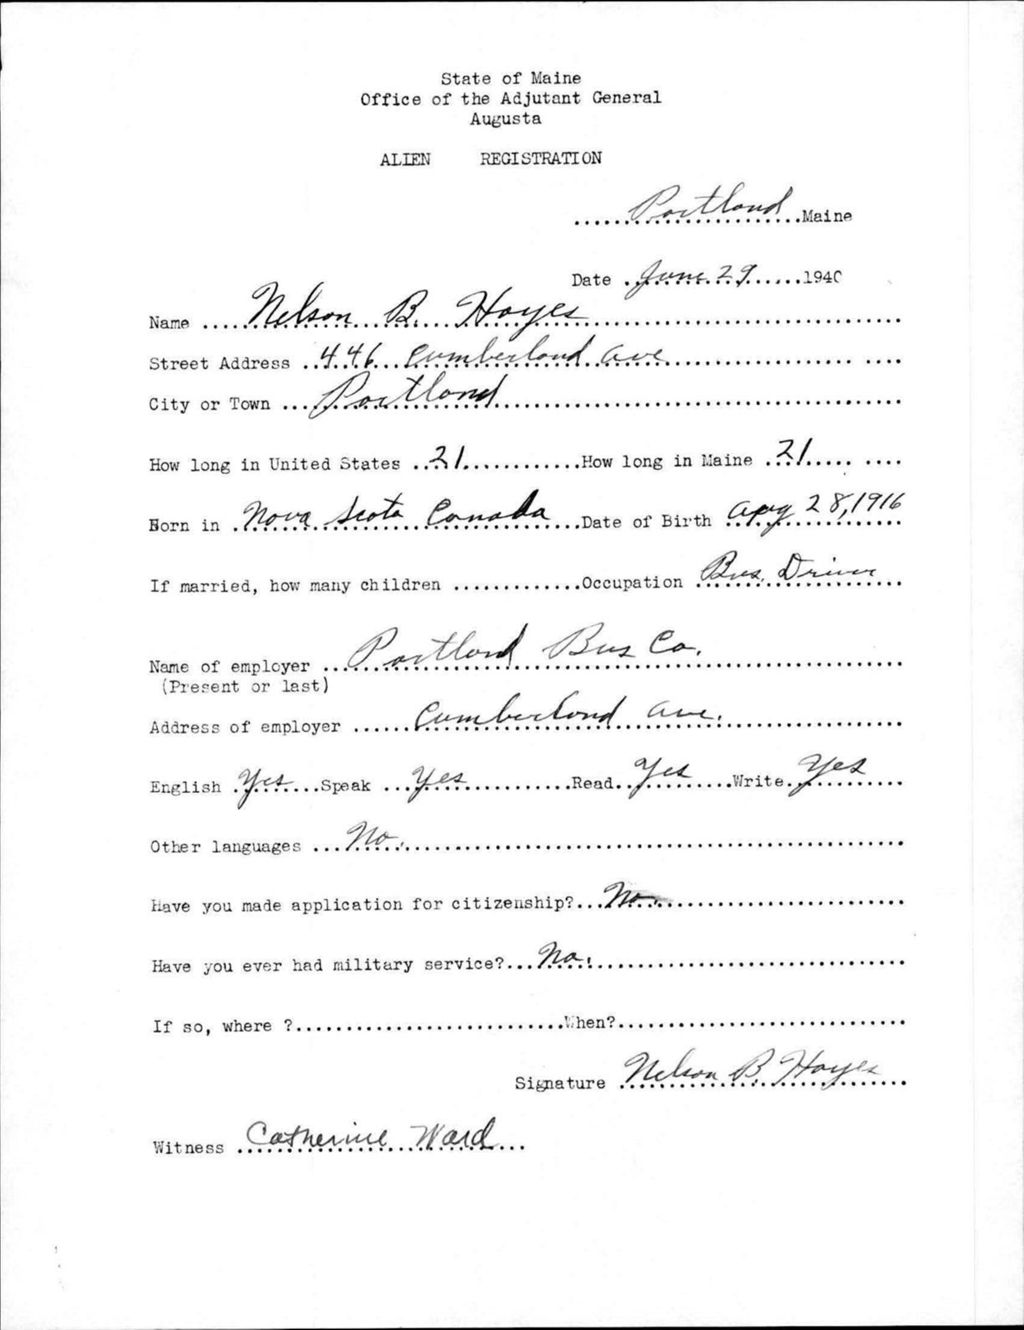 State of Maine
Office of the Adjutant General
Augusta
ALIEN REGISTRATION
Portland Maine
Date June 29 1940
Name Nelson B. Hayes
Street Address 446 Cumberland Ave
City or Town Portland
How long in United States 21 How long in Maine 21
Born in Nova Scota Canada Date of Birth 28, 1916
If married, how many children Occupation Bus Driver
Name of employer Portland Bus Co.
(Present or last)
Address of employer Cumberland Ave.
English Yes Speak Yes Read Yes Write Yes
Other languages No.
Have you made application for citizenship? No.
Have you ever had military service? No.
If so, where ? When?
Signature Nelson B Hayes
Witness Catherine Ward